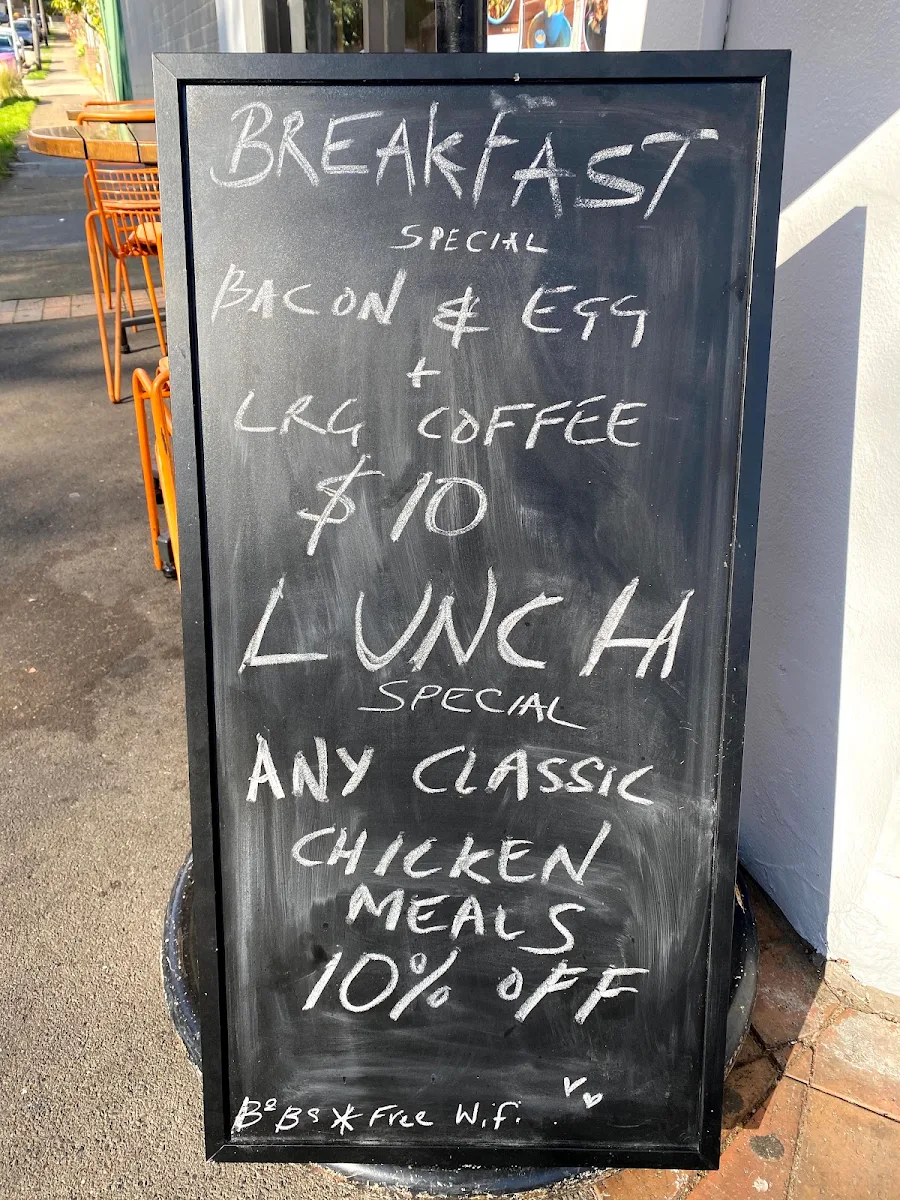 BREAKFAST
SPECIAL
BACON & EGG
+
LRG COFFEE
$10
LUNCH
SPECIAL
ANY CLASSIC
CHICKEN
MEALS
10% OFF
Free Wifi